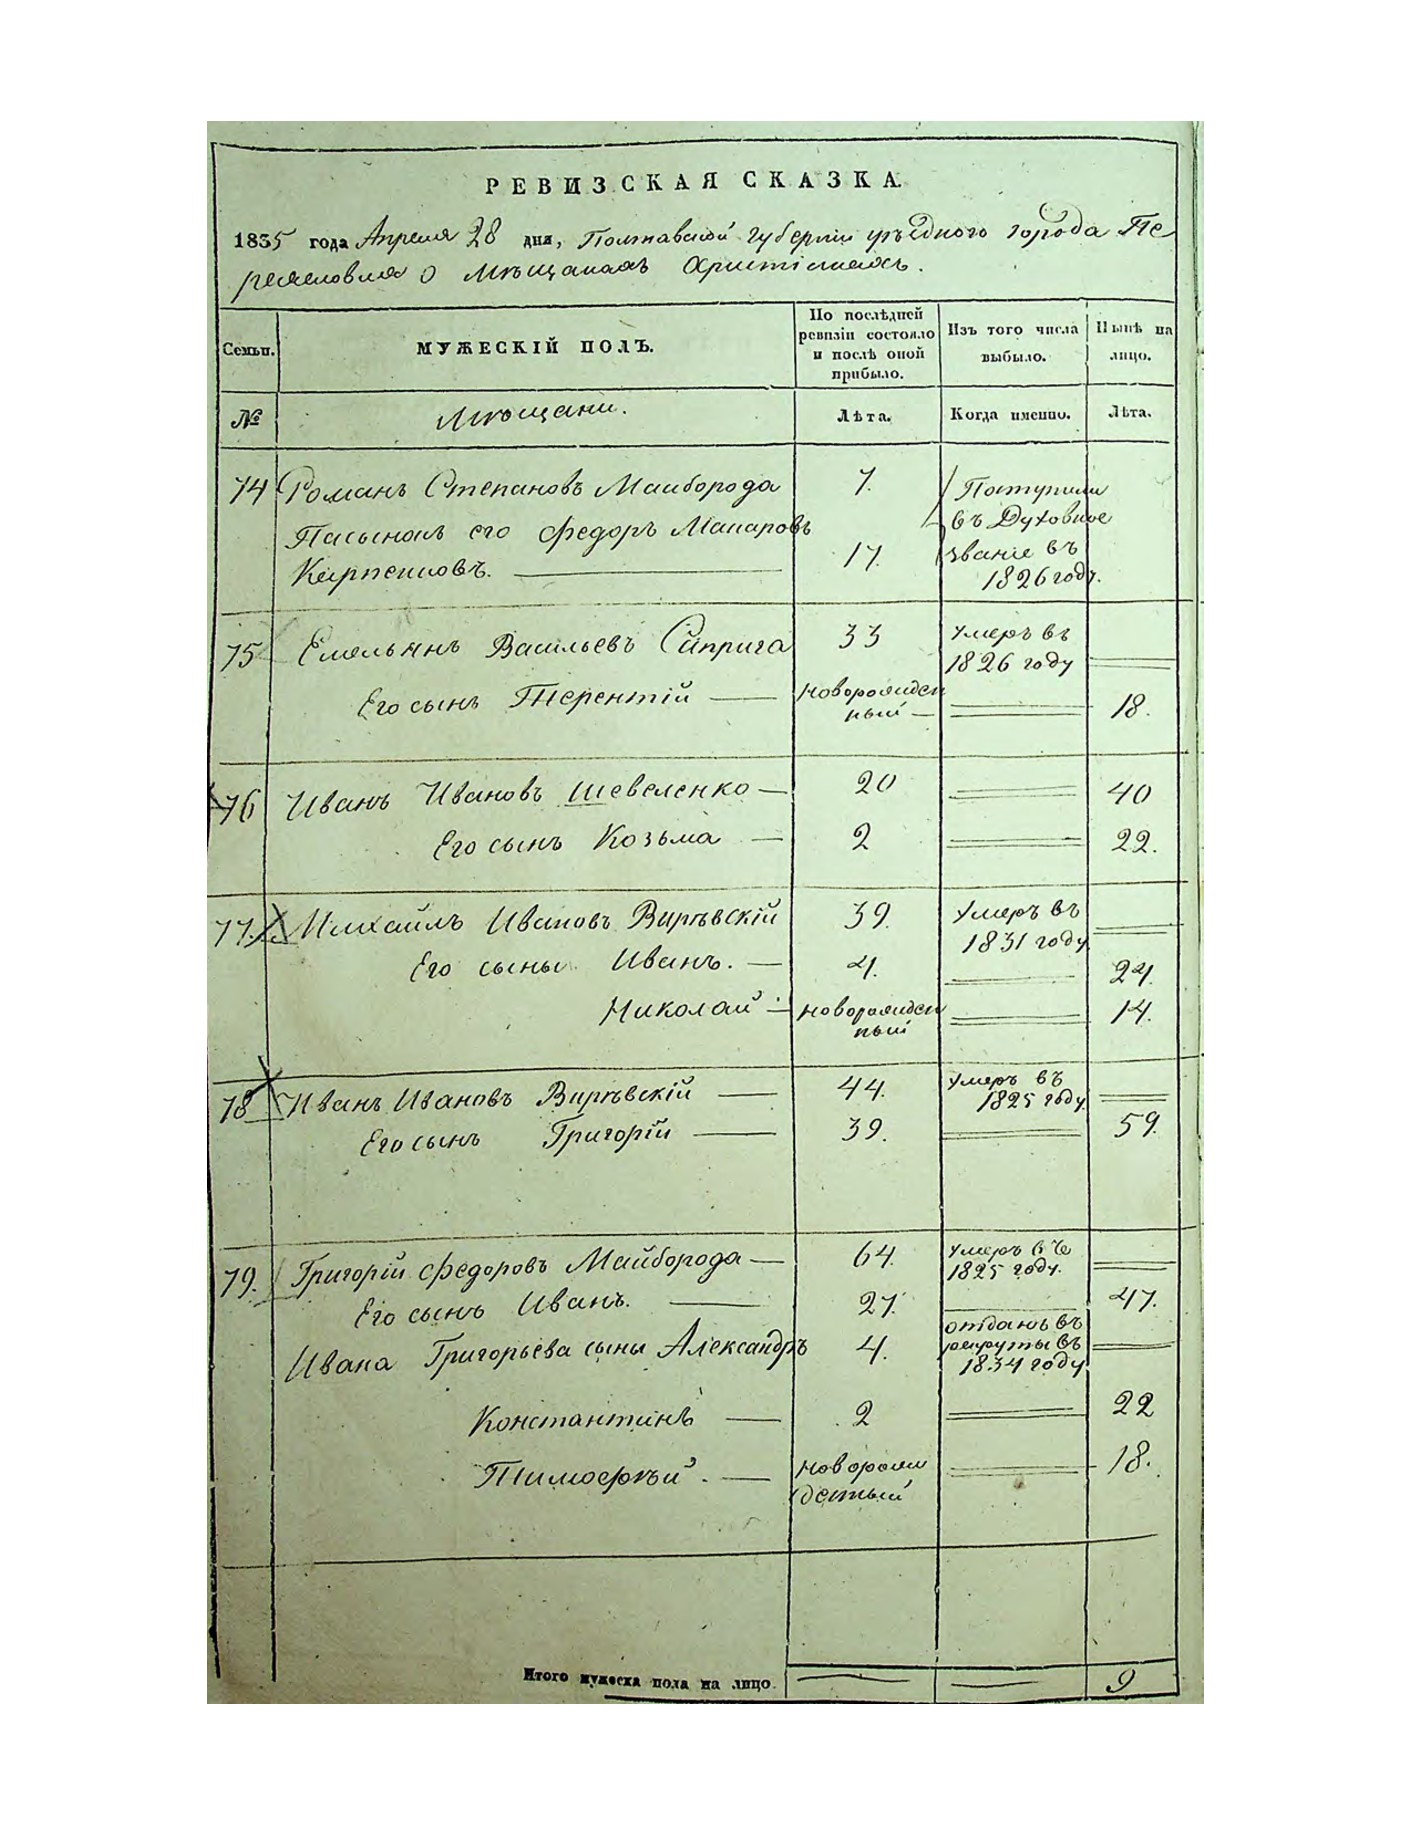 РЕВИЗСКАЯ СКАЗКА.
1835 года Апреля 28 дня, Полтавской Губерніи уѣздного города Пе
реяславля о мѣщанахъ Христіянахъ.
Семьи.
МУЖЕСКІЙ ПОЛЪ.
По послѣдней ревизіи состояло и послѣ оной прибыло.
Изъ того числа выбыло.
Нынѣ на лицо.
№
Мѣщани.
Лѣта.
Когда именно.
Лѣта.
74 Романъ Степановъ Майборода 7. Поступили
Пасынокъ его Федоръ Макаровъ въ Духовное
Карпенковъ. 17. званіе въ
1826 году.
75 Емельянъ Васильевъ Сиприга 33 умеръ въ
1826 году
Его сынъ Терентій новорожден
ный 18.
76 Иванъ Ивановъ Шевеленко 20 40
Его сынъ Козьма 2 22.
77. Михайлъ Ивановъ Вирѣвскій 39. умеръ въ
1831 году
Его сыны Иванъ. 4. 24.
Николай новорожден 14.
ный
78 Иванъ Ивановъ Вирѣвскій 44. умеръ въ
1825 году.
Его сынъ Григорій 39. 59.
79. Григорій Федоровъ Майборода 64. умеръ въ
1825 году.
Его сынъ Иванъ. 27. 47.
Ивана Григорьева сыны Александръ 4. отданъ въ
рекруты въ
1834 году
Константинъ 2 22
Тимофѣй. новорож 18.
денный
Итого мужеска пола на лицо 9